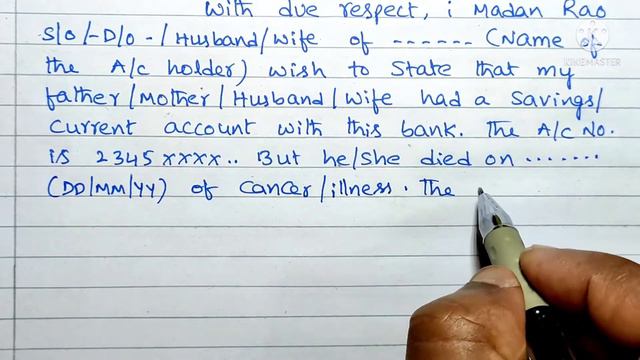 With due respect, i Madan Rao
S/O/-D/O-/Husband/Wife of ------ (Name of
the A/c holder) wish to State that my
father/Mother/Husband/Wife had a Savings/
Current account with this bank. The A/c No.
is 2345xxxx.. But he/She died on .......
(DD/MM/YY) of Cancer/illness. The
KINEMASTER